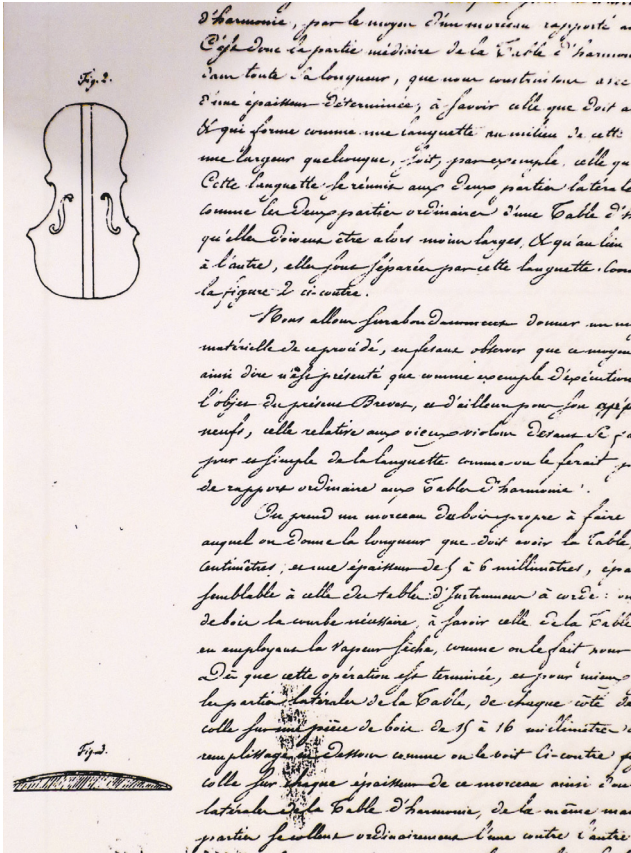 d'harmonie, par le moyen d'un morceau rapporté au
Fig. 2.
C'est donc la partie médiaire de la Table d'harmon
dans toute sa longueur, que nous construisons avec
d'une épaisseur déterminée, à savoir celle que doit a
& qui forme comme une languette au milieu de cett
une largeur quelconque, soit, par exemple, celle qu
Cette languette se réunit aux deux parties latérale
comme les deux parties ordinaires d'une Table d'h
qu'elles doivent être alors moins larges, & qu'au lieu
à l'autre, elles sont séparées par cette languette. Com
la figure 2 ci-contre.
Nous allons surabondamment donner un
matérielle de ce procédé, en fesant observer que ce moyen
ainsi dire n'est présenté que comme exemple d'exécution
l'objet du présent Brevet, et d'ailleurs pour son
neufs, celle relative aux vieux violons devant se
pur et simple de la languette comme on le ferait
de rapport ordinaire aux Tables d'harmonie.
On prend un morceau de bois propre à faire
auquel on donne la longueur que doit avoir la Table,
centimètres, et une épaisseur de 5 à 6 millimètres, épa
semblable à celle des tables d'Instrumens à corde :
de bois la courbe nécessaire, à savoir celle de la Table
en employant la vapeur sèche, comme on le fait pour
dès que cette opération est terminée, et pour mieux
les parties latérales de la Table, de chaque côté de
colle sur une pièce de bois de 15 à 16 millimètres
Fig. 3.
remplissage en dessous comme on le voit ci-contre
colle sur chaque épaisseur de ce morceau ainsi
latérales de la Table d'harmonie, de la même ma
parties se collent ordinairement l'une contre l'autre